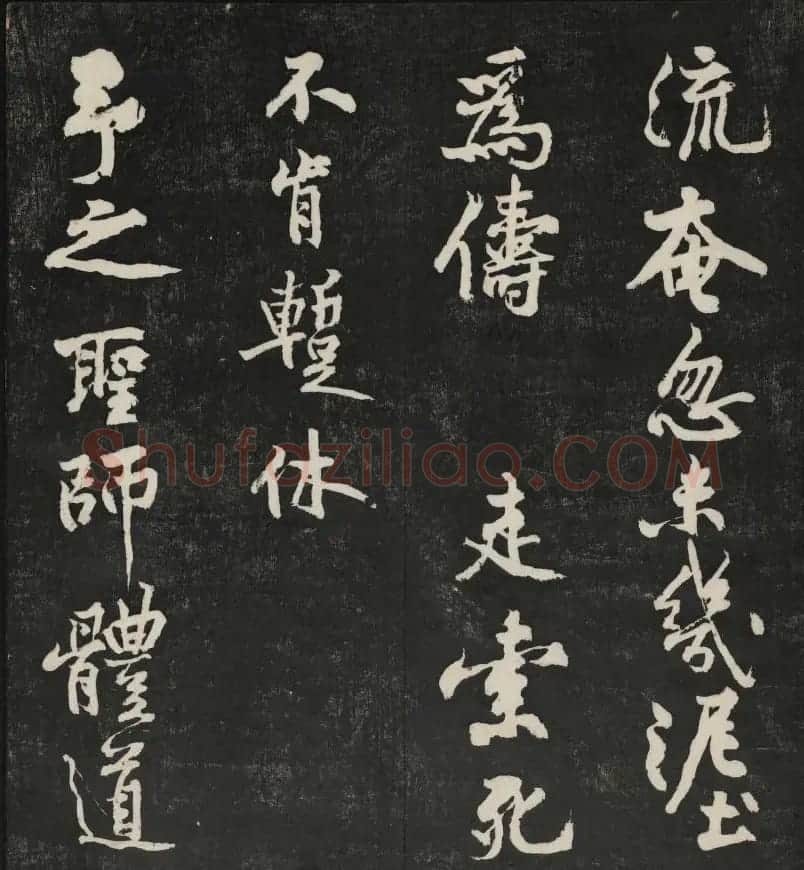 流奄忽未幾泥土
爲儔 走索死
不肯蹔休
予之聖師體道
Shufaziliao.COM